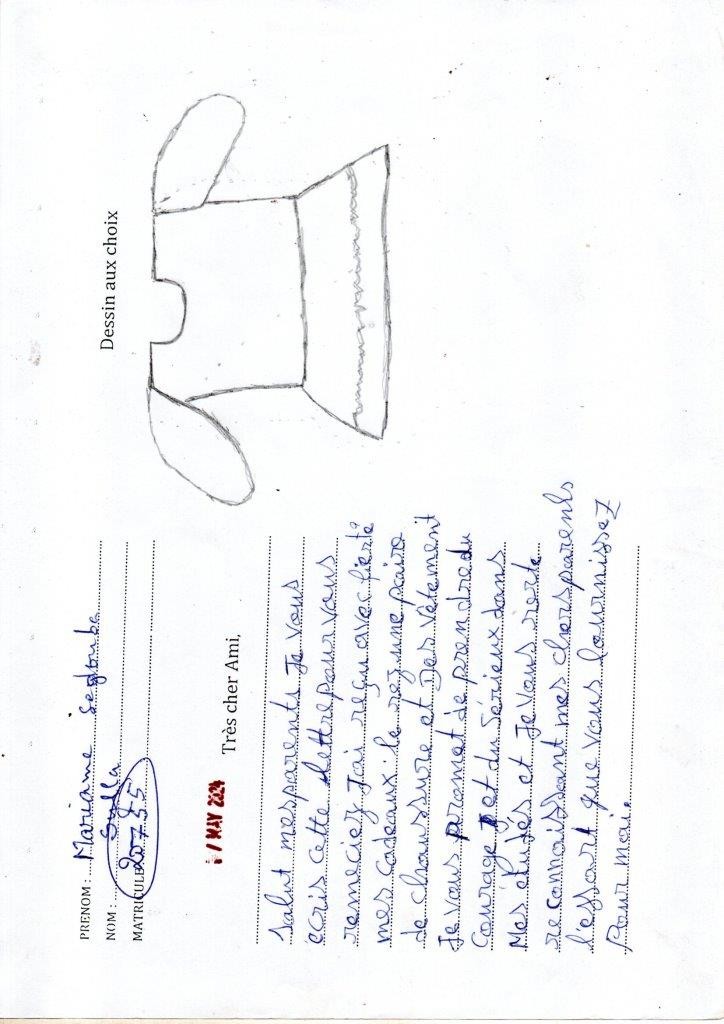 PRENOM : Mariame Segbmba
NOM : Sylla
MATRICULE 20755
7 MAY 2024
Très cher Ami,
Salut mes parents Je vous
écris cette lettre pour vous
remeciez J'ai reçu avec fierté
mes cadeaux le rez une paire
de chaussure et Des vêtement
Je vous promet de prendre du
Courage et du Sérieux dans
Mes etudes et Je vous reste
reconnaissant mes chers parents
l'effort que vous fournissez
Pour moi.
Dessin aux choix